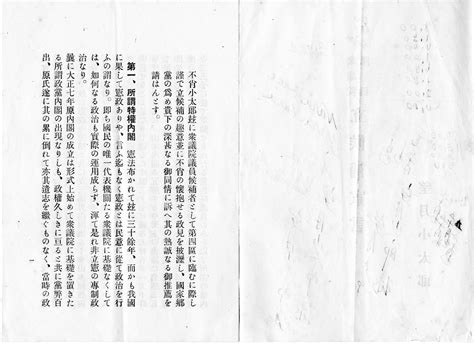 不肖小太郎玆に衆議院議員候補者として第四區に臨むに際し
謹で立候補の趣意並に不肖の懷抱せる政見を披瀝し、國家鄕
黨の爲め貴下の深甚なる御同情に訴へ其の熱誠なる御推薦を
請はんとす。
第一、所謂特權內閣 憲法布かれて玆に三十餘年、而かも我國
に果して憲政ありや、言ふ迄もなく憲政とは民意に從て政治を行
ふの謂なり。即ち國民の唯一代表機關たる衆議院に基礎なくして
は、如何なる政治も實際の運用成らず、渾て是れ非立憲の專制政
治なり。
曩に大正七年原內閣の成立は形式上始めて衆議院に基礎を置きた
る所謂政黨內閣の出現なりしも、政權久しきに亘ると共に黨弊百
出、原氏遂に其の累に倒れて亦其遺志を繼ぐものなく、當時の政
一
望月小太郎